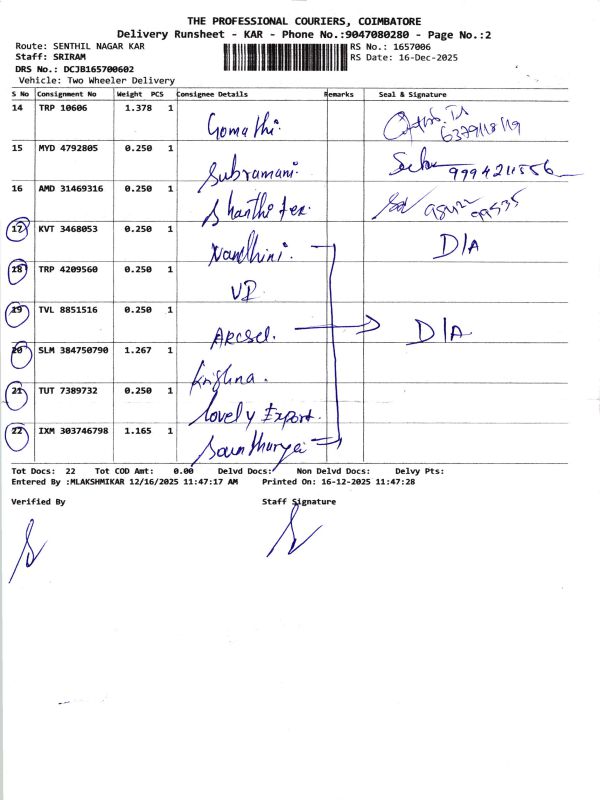 THE PROFESSIONAL COURIERS, COIMBATORE
Delivery Runsheet - KAR - Phone No.:9047080280 - Page No.:2
Route: SENTHIL NAGAR KAR RS No.: 1657006
Staff: SRIRAM RS Date: 16-Dec-2025
DRS No.: DCJB165700602
Vehicle: Two Wheeler Delivery
S No Consignment No Weight PCS Consignee Details Remarks Seal & Signature
14 TRP 10606 1.378 1
Gomathi.
15 MYD 4792805 0.250 1
Subramani.
16 AMD 31469316 0.250 1
Shanthi tex.
17 KVT 3468053 0.250 1
Nandhini. D/A
18 TRP 4209560 0.250 1
19 TVL 8851516 0.250 1
D/A
20 SLM 384750790 1.267 1
Krishna.
21 TUT 7389732 0.250 1
Lovely Export.
22 IXM 303746798 1.165 1
Tot Docs: 22 Tot COD Amt: 0.00 Delvd Docs: Non Delvd Docs: Delvy Pts:
Entered By :MLAKSHMIKAR 12/16/2025 11:47:17 AM Printed On: 16-12-2025 11:47:28
Verified By Staff Signature